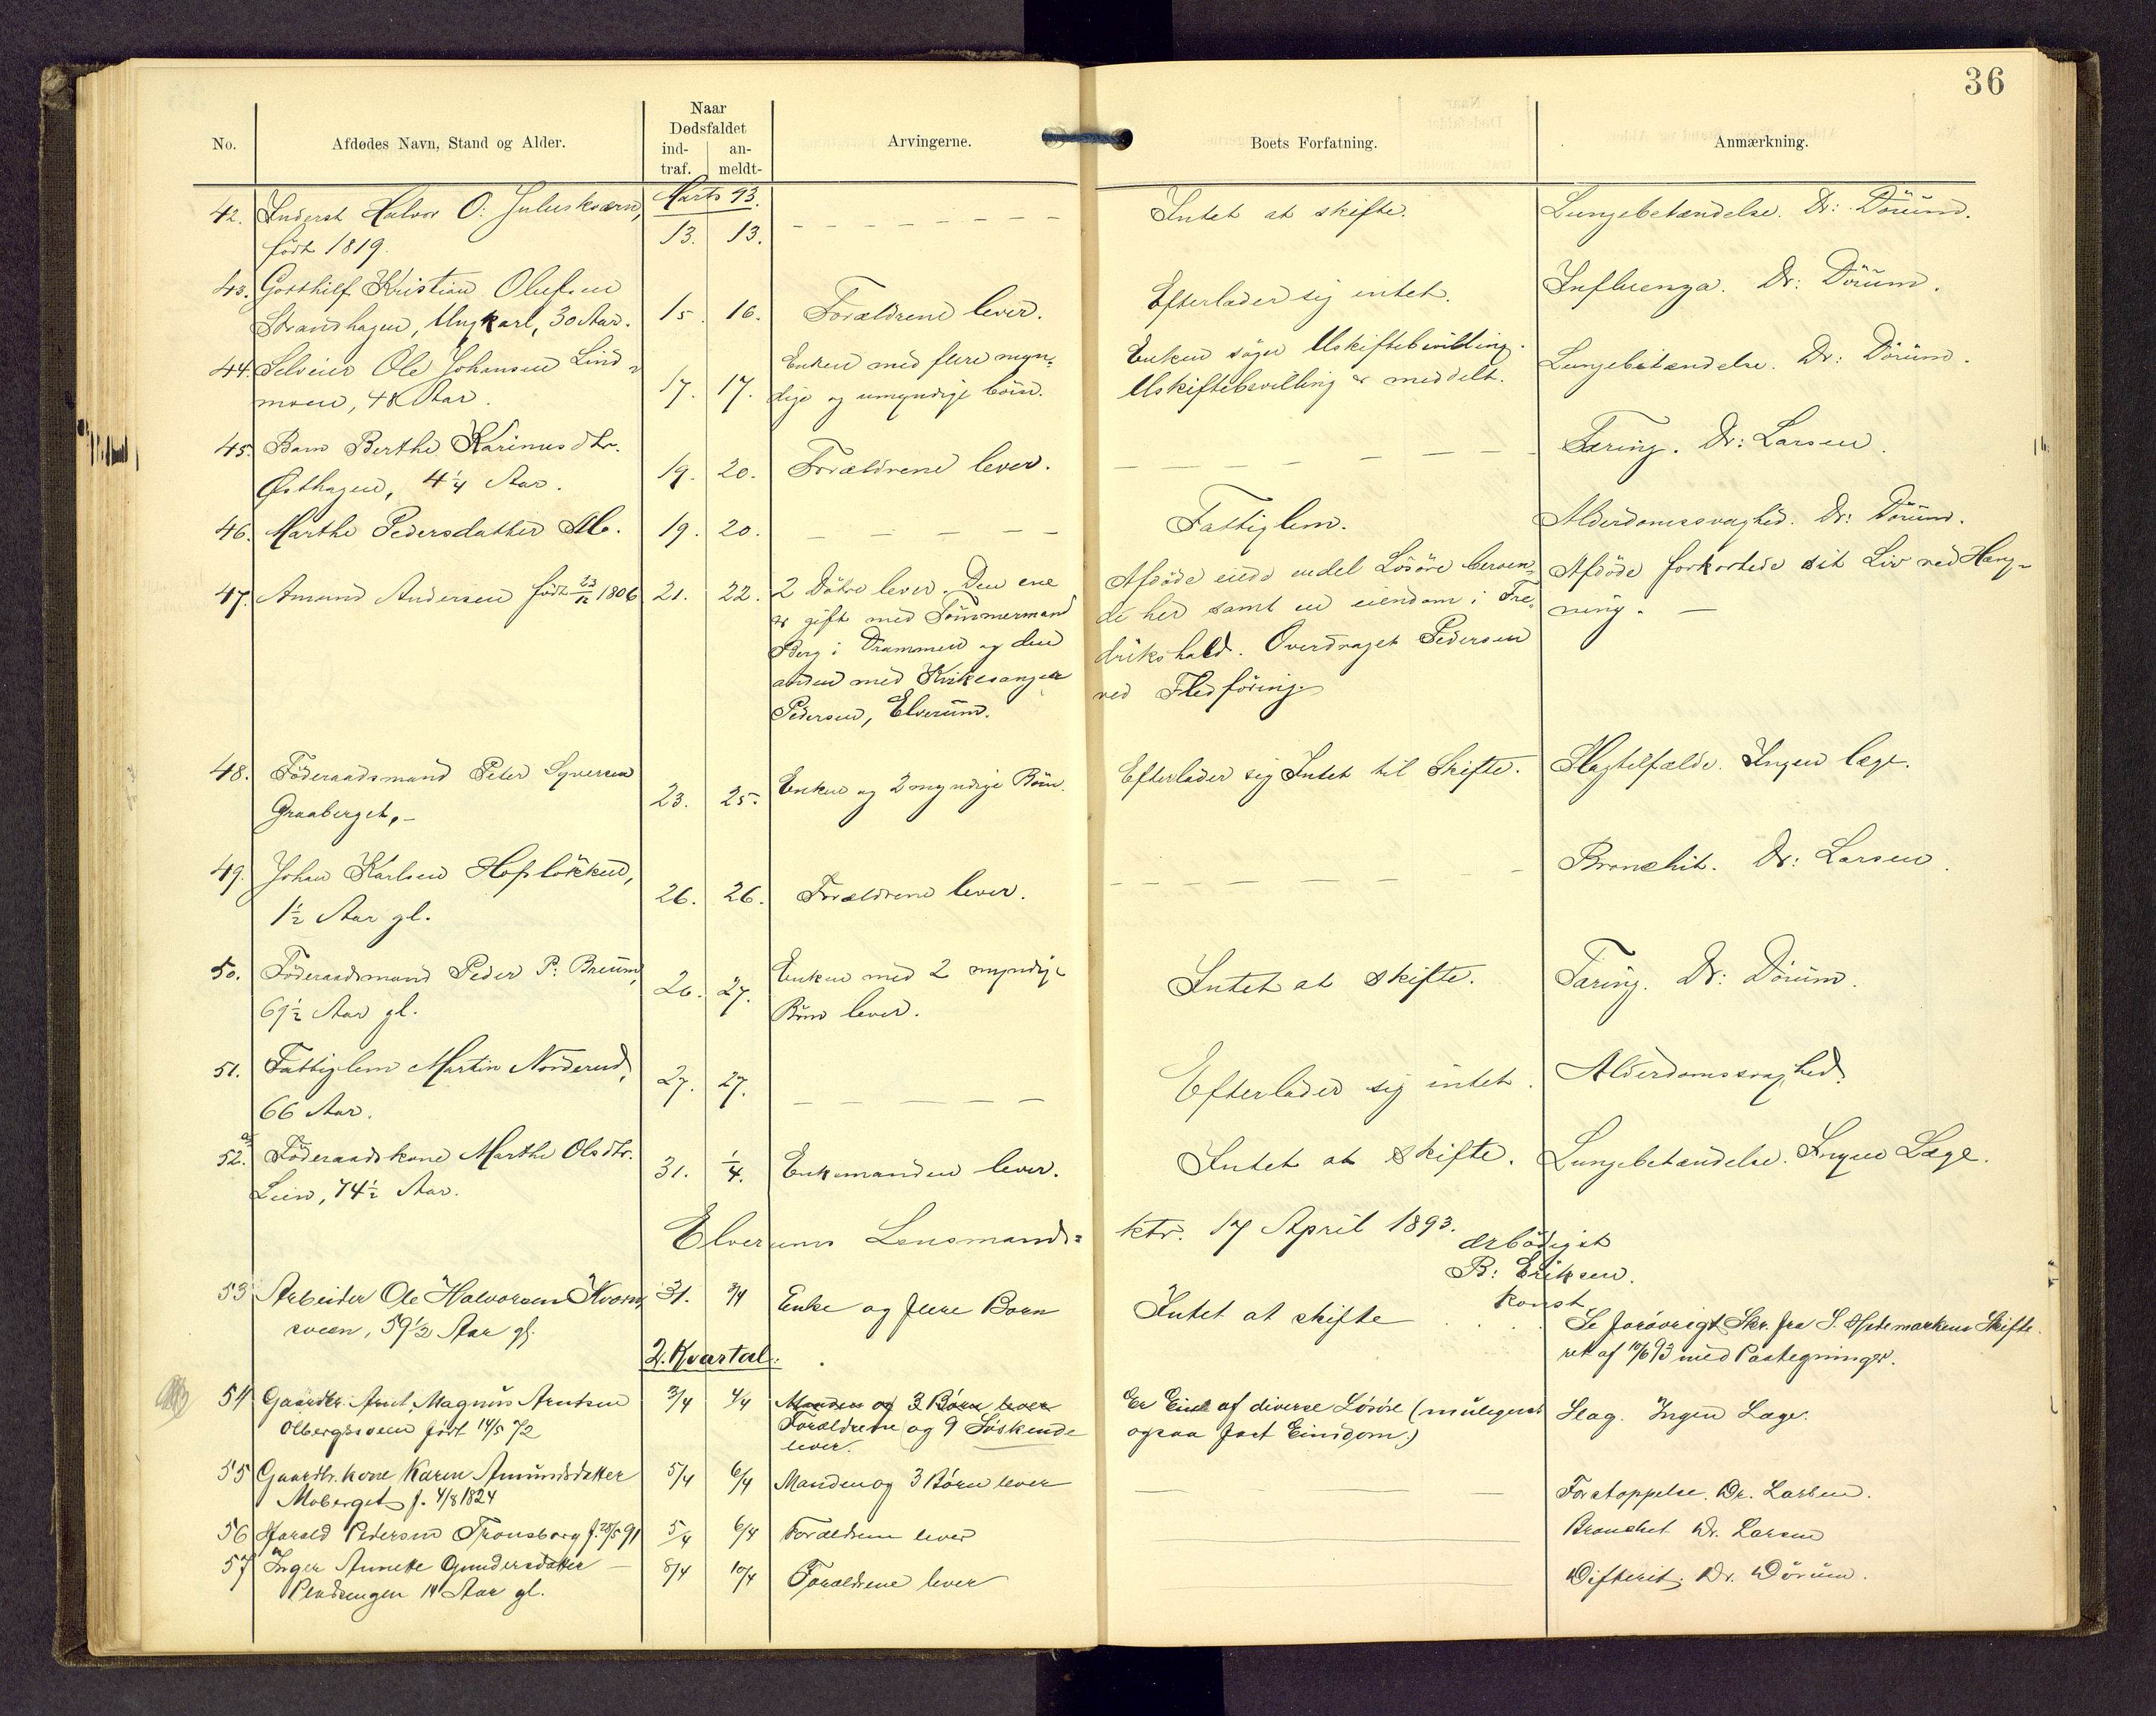 36
No.
Afdødes Navn, Stand og Alder.
Naar
Dødsfaldet
ind-
traf.
an-
meldt-
Arvingerne.
Boets Forfatning.
Anmærkning.
Marts 93.
42. Inderst Halvor O: Juluskværn, 13. 13. Intet at skifte. Lungebetændelse. Dr: Dörum.
født 1819.
43. Gotthilf Kristian Olufsen 15. 16. Forældrene lever. Efterlader sig intet. Influenza. Dr: Dörum.
Strandhagen, Ungkarl, 30 Aar.
44. Selveier Ole Johansen Lind- 17. 17. Enken med flere myn- Enken søger Uskiftebevilling. Lungebetændelse. Dr: Dörum.
moen, 48 Aar. dige og umyndige börn. Uskiftebevilling er meddelt.
45. Barn Berthe Karinusdtr. 19. 20. Forældrene lever. Tæring. Dr: Larsen.
Østhagen, 4 1/4 Aar.
46. Marthe Pedersdatter 19. 20. Fattiglem. Alderdomssvaghed. Dr: Dörum.
47. Amund Andersen født 23/12 1806 21. 22. 2 Døtre lever. Den ene Afdöde eiede endel Lösöre beroen- Afdöde forkortede sit Liv ved Hæng-
er gift med Tömmermand de her samt en eiendom i Fre- ning. —
Berg i Drammen og den drikshald. Overdraget Pedersen
anden med Kirkesanger ved Fledföring.
Pedersen, Elverum.
48. Föderaadsmand Peter Syversen 23. 25. Enken og 2 myndige Börn. Efterlader sig Intet til Skifte. Slagtilfælde. Ingen læge.
Graaberget, -
49. Johan Karlsen Hoflökken, 26. 26. Forældrene lever. Bronchit. Dr: Larsen.
1 1/2 Aar gl.
50. Föderaadsmand Peder P: Breum, 26. 27. Enken med 2 myndige Intet at skifte. Tæring. Dr: Dörum.
69 1/2 Aar gl. Börn lever.
51. Fattiglem Martin Norderud, 27. 27. Efterlader sig intet. Alderdomssvaghed.
66 Aar.
52. a Föderaadskone Marthe Olsdtr. 31. 1/4. Enkemanden lever. Intet at skifte. Lungebetændelse. Ingen Læge.
Lien, 74 1/2 Aar.
Elverums Lensmands= ktr. 17 April 1893.
ærbödigst
B: Eriksen.
konst
53 Arbeider Ole Halvorsen Kvern- 31. 3/4 Enke og flere Børn Intet at skifte Se forøvrigt Skr. fra S. Hedemarkens Skifte-
sveen, 59 1/2 Aar gl. ret af 10/6 93 med Paategninger.
2. Kvartal.
54 Gaardbr. Arnt Magnus Arntsen 3/4 4/4 Manden og 3 Børn lever Er Eier af diverse Løsøre (muligens Slag. Ingen Læge.
Olbergsveen født 14/5 72 Forældrene og 9 Søskende ogsaa fast Eiendom.)
lever.
55 Gaardbr. kone Karen Amundsdatter 5/4 6/4 Manden og 3 Børn lever Forstoppelse. Dr. Larsen.
Moberget f. 4/8 1824
56 Harald Pedersen Fronsborg f. 28/5 91 5/4 6/4 Forældrene lever Bronchit Dr. Larsen
57 Inger Annette Gundersdatter 8/4 10/4 Forældrene lever Difterit. Dr. Dørum.
14 Aar gl.